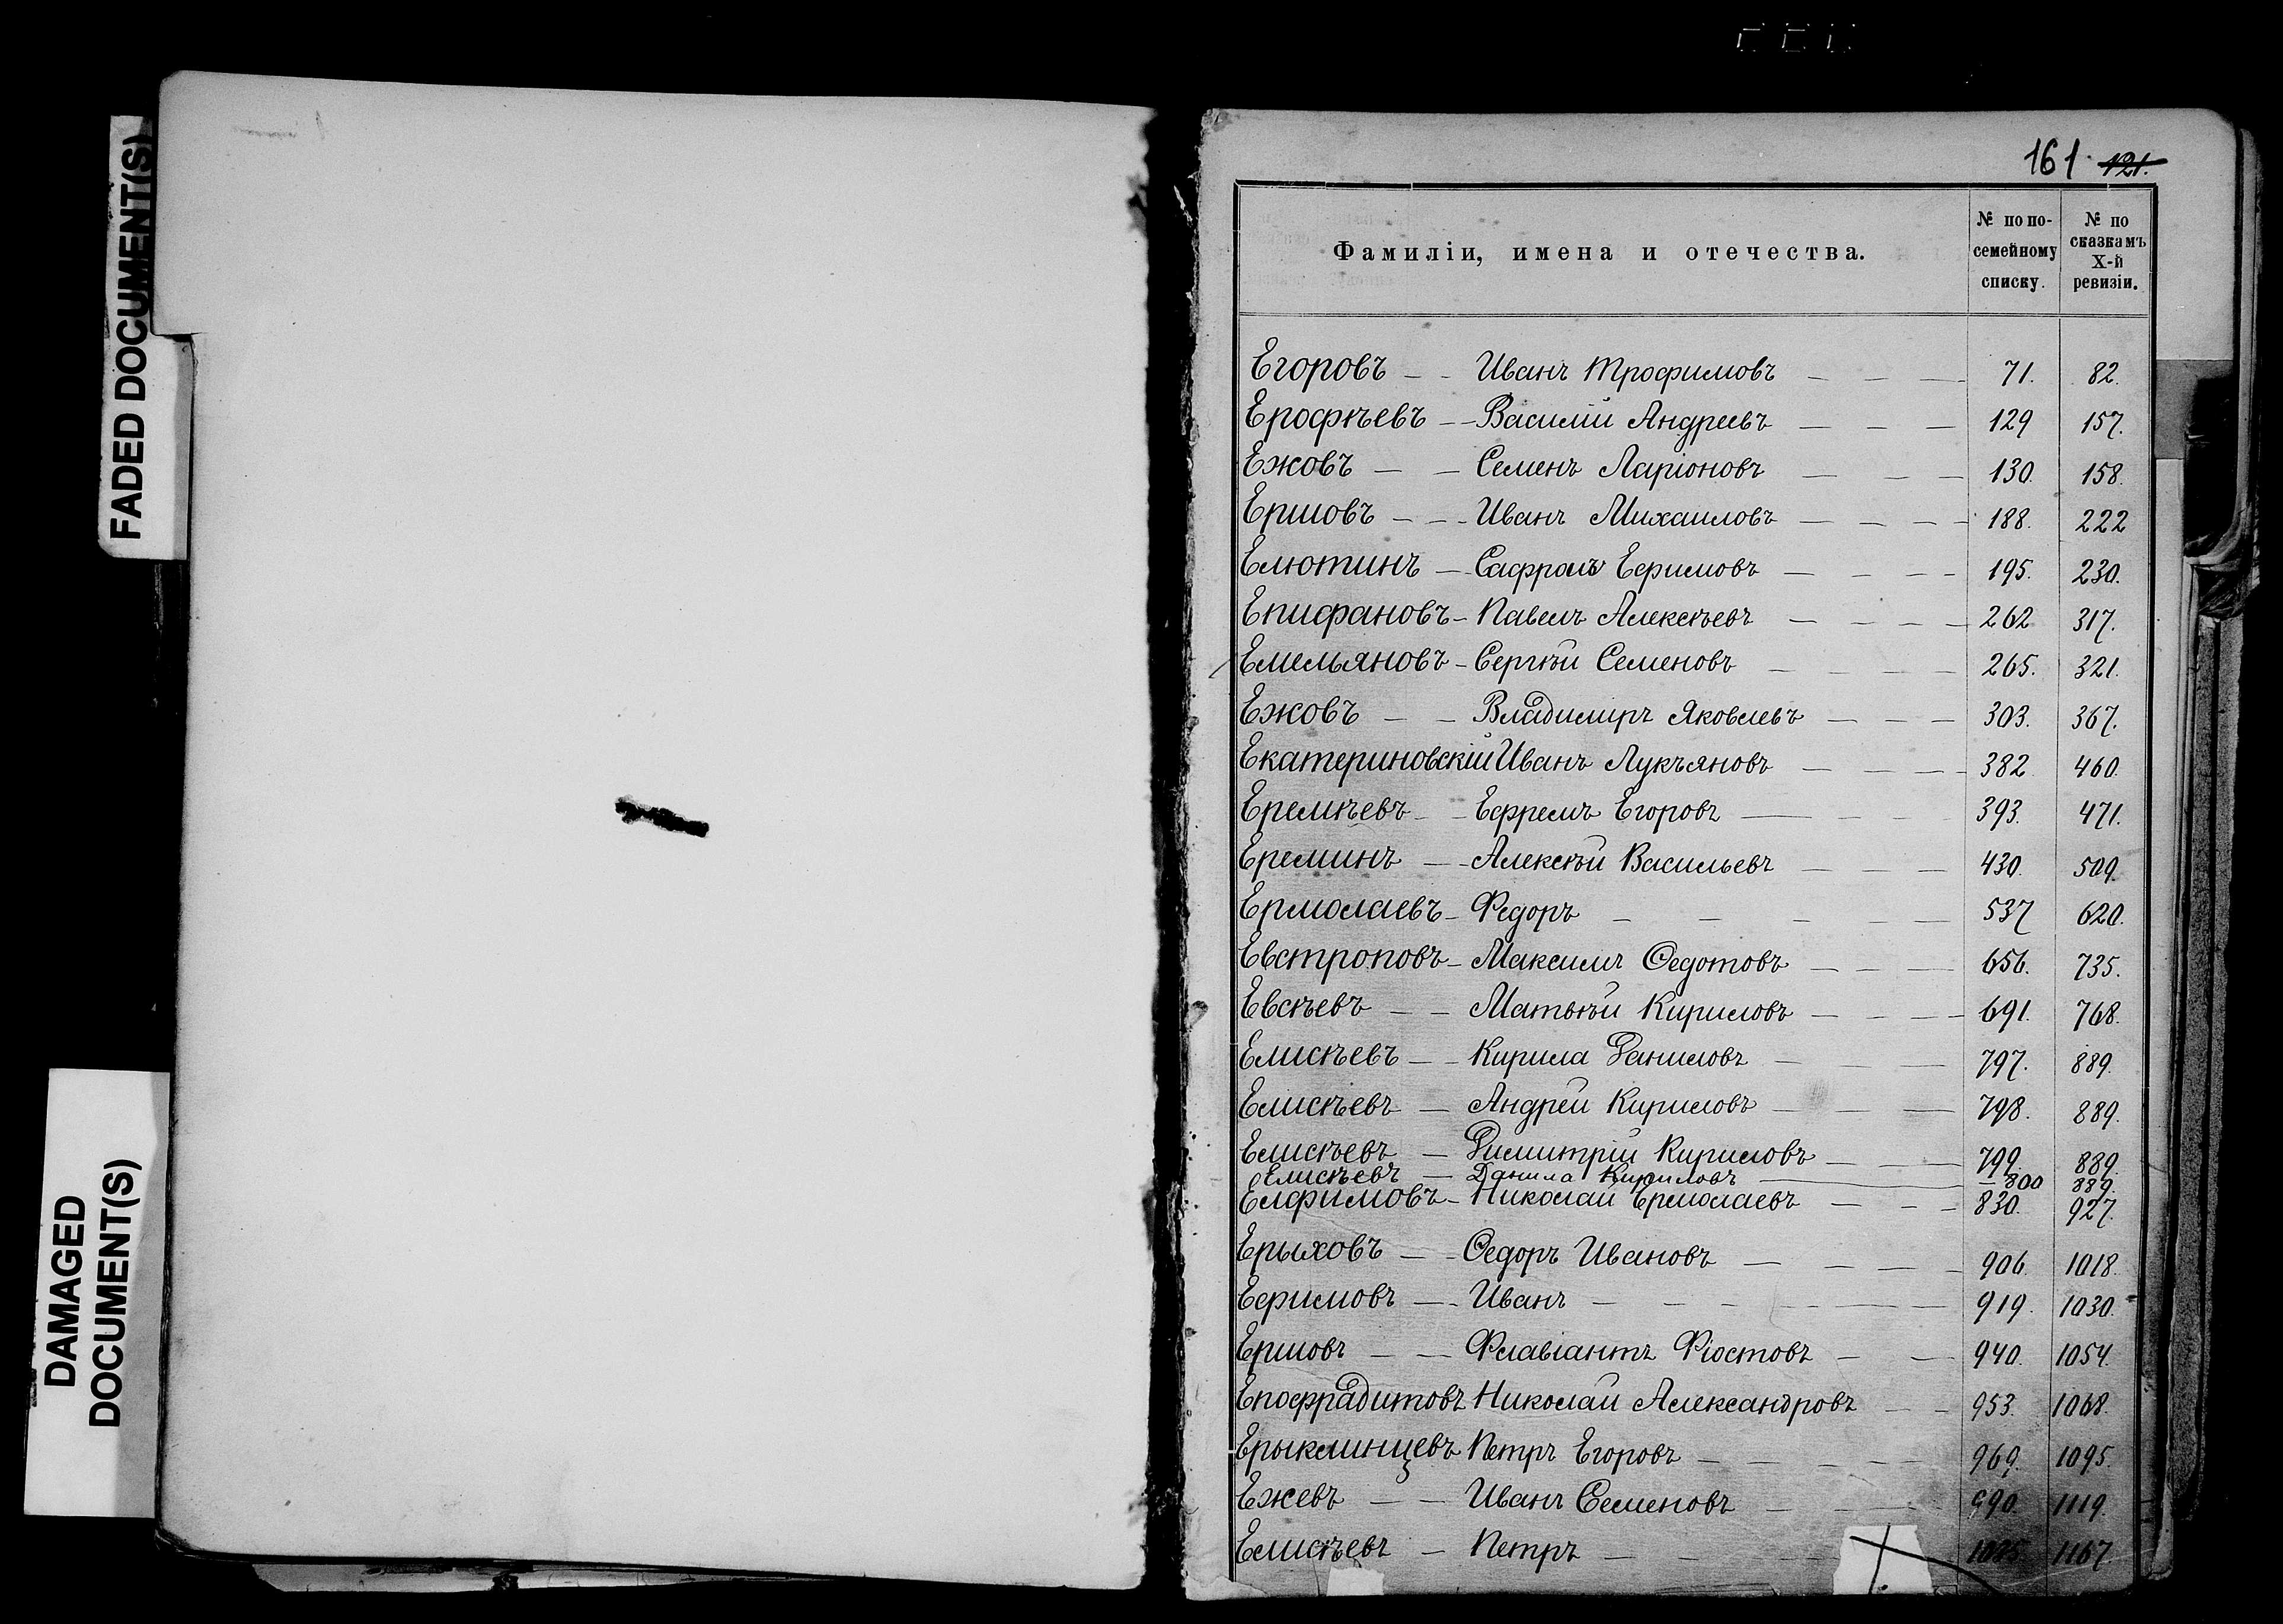 FADED DOCUMENT(S)
DAMAGED
DOCUMENT(S)
161. 121.
Фамиліи, имена и отечества.
№ по по-
семейному
списку.
№ по
сказкамъ
X-й
ревизіи.
Егоровъ — — Иванъ Трофимовъ — — — 71. 82.
Ерофѣевъ — — Василій Андреевъ — — — 129 157.
Ежовъ — — Семенъ Ларіоновъ — — — 130. 158.
Ершовъ — — Иванъ Михаиловъ — — — 188. 222
Елютинъ — Сафронъ Ефимовъ — — — 195. 230.
Епифановъ — Павелъ Алексѣевъ — — — 262 317.
Емельяновъ — Сергѣй Семеновъ — — — 265. 321.
Ежовъ — — Владимиръ Яковлевъ — — — 303. 367.
Екатериновскій Иванъ Лукъяновъ — — — 382 460.
Еремѣевъ — — Ефремъ Егоровъ — — — 393. 471.
Ереминъ — — Алексѣй Васильевъ — — — 430. 509.
Ермолаевъ — Федоръ — — — — 537 620.
Евстроповъ — Максимъ Ѳедотовъ — — — 656. 735.
Евсѣевъ — — Матвѣй Кириловъ — — — 691. 768.
Елисѣевъ — — Кирила Даниловъ — — — 797. 889.
Елисѣевъ — Андрей Кириловъ — — — 798. 889.
Елисѣевъ — Димитрій Кириловъ — — 799. 889.
Елисѣевъ — Данила Кириловъ — 800 889.
Елфимовъ — Николай Ермолаевъ — — — 830. 927.
Ерыховъ — — Ѳедоръ Ивановъ — — — 906. 1018.
Ефимовъ — — Иванъ — — — — 919. 1030.
Ершовъ — — Флавіантъ Фіостовъ — — 940. 1054.
Епофрадитовъ Николай Александровъ — — 953. 1068.
Ерыклинцевъ Петръ Егоровъ — — — 969. 1095.
Ежевъ — — Иванъ Семеновъ — — 990. 1119.
Елисѣевъ — Петръ — — — 1167